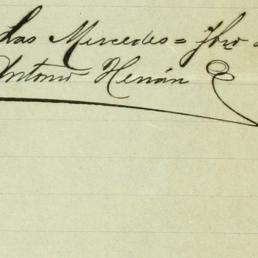 Las Mercedes = Fbro =
Antonio Hernán